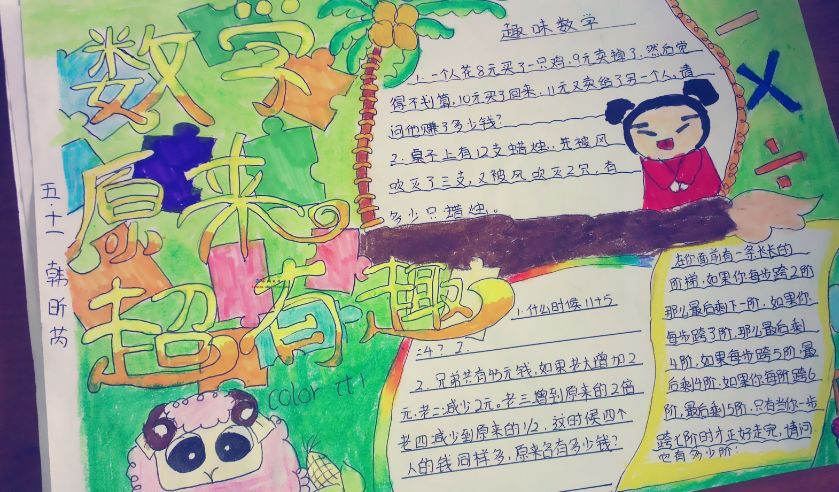 数学
原来
超有趣
五.十一 韩昕芮
color it!
趣味数学
1. 一个人花8元买了一只鸡,9元卖掉了,然后觉
得不划算,10元买了回来,11元又卖给了另一个人,请
问他赚了多少钱?
2. 桌子上有12支蜡烛,先被风
吹灭了三支,又被风吹灭2只,有
多少只蜡烛。
1. 什么时候11+5
=4? 2.
2. 兄弟共有45元钱,如果老大增加2
元,老二减少2元。老三增到原来的2倍
老四减少到原来的1/2,这时候四个
人的钱同样多,原来各有多少钱?
在你面前有一条长长的
阶梯,如果你每步跨2阶
那么最后剩下一阶,如果你
每步跨3阶,那么最后剩
4阶,如果每步跨5阶,最
后剩4阶,如果你每阶跨6
阶,最后剩5阶,只有当你一步
跨七阶时才正好走完,请问
也有多少阶?